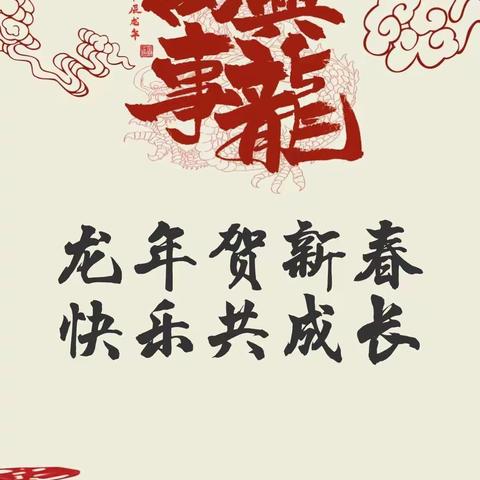 事龍
辰龙年
龙年贺新春
快乐共成长